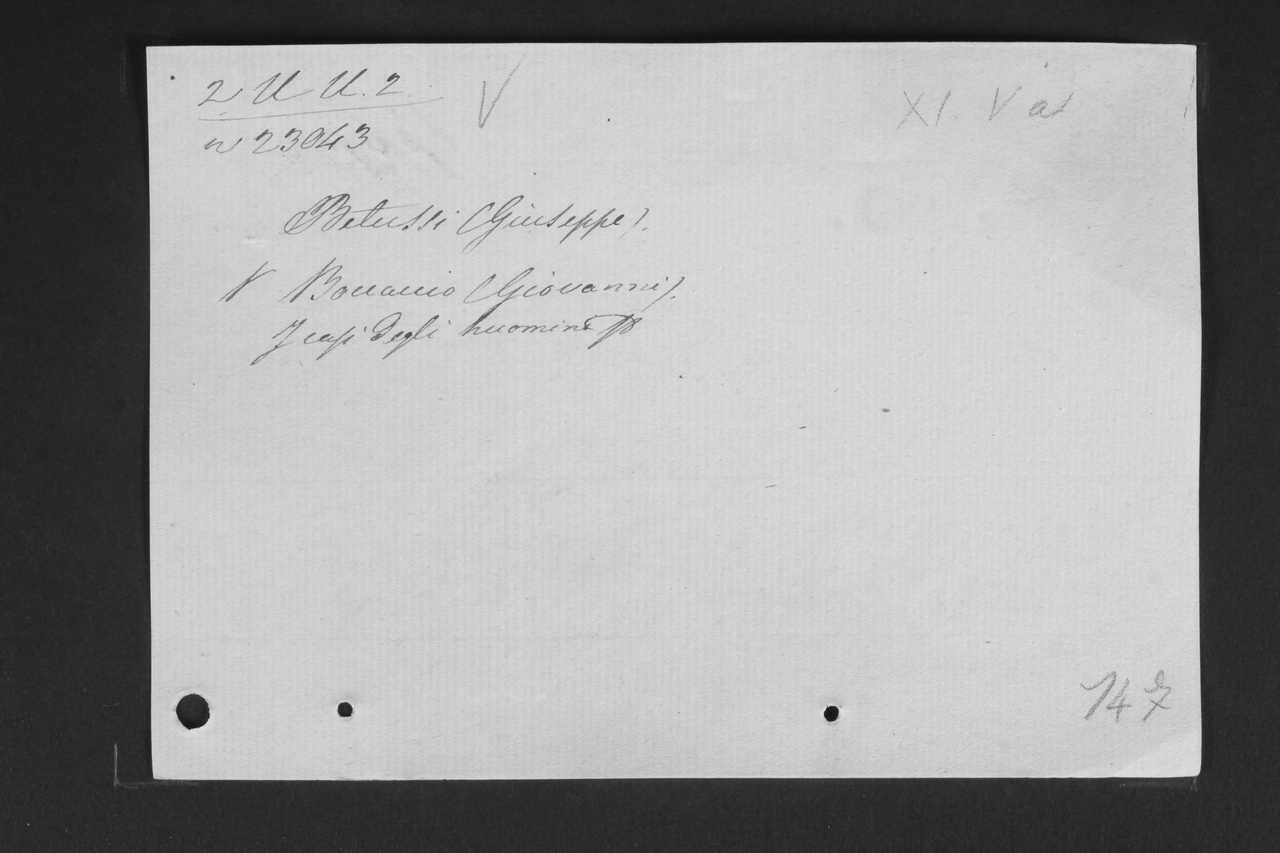 2 U U. 2 V XI. V a
n 23043
Betussi (Giuseppe).
V Boccaccio (Giovanni).
I casi degli huomini
147